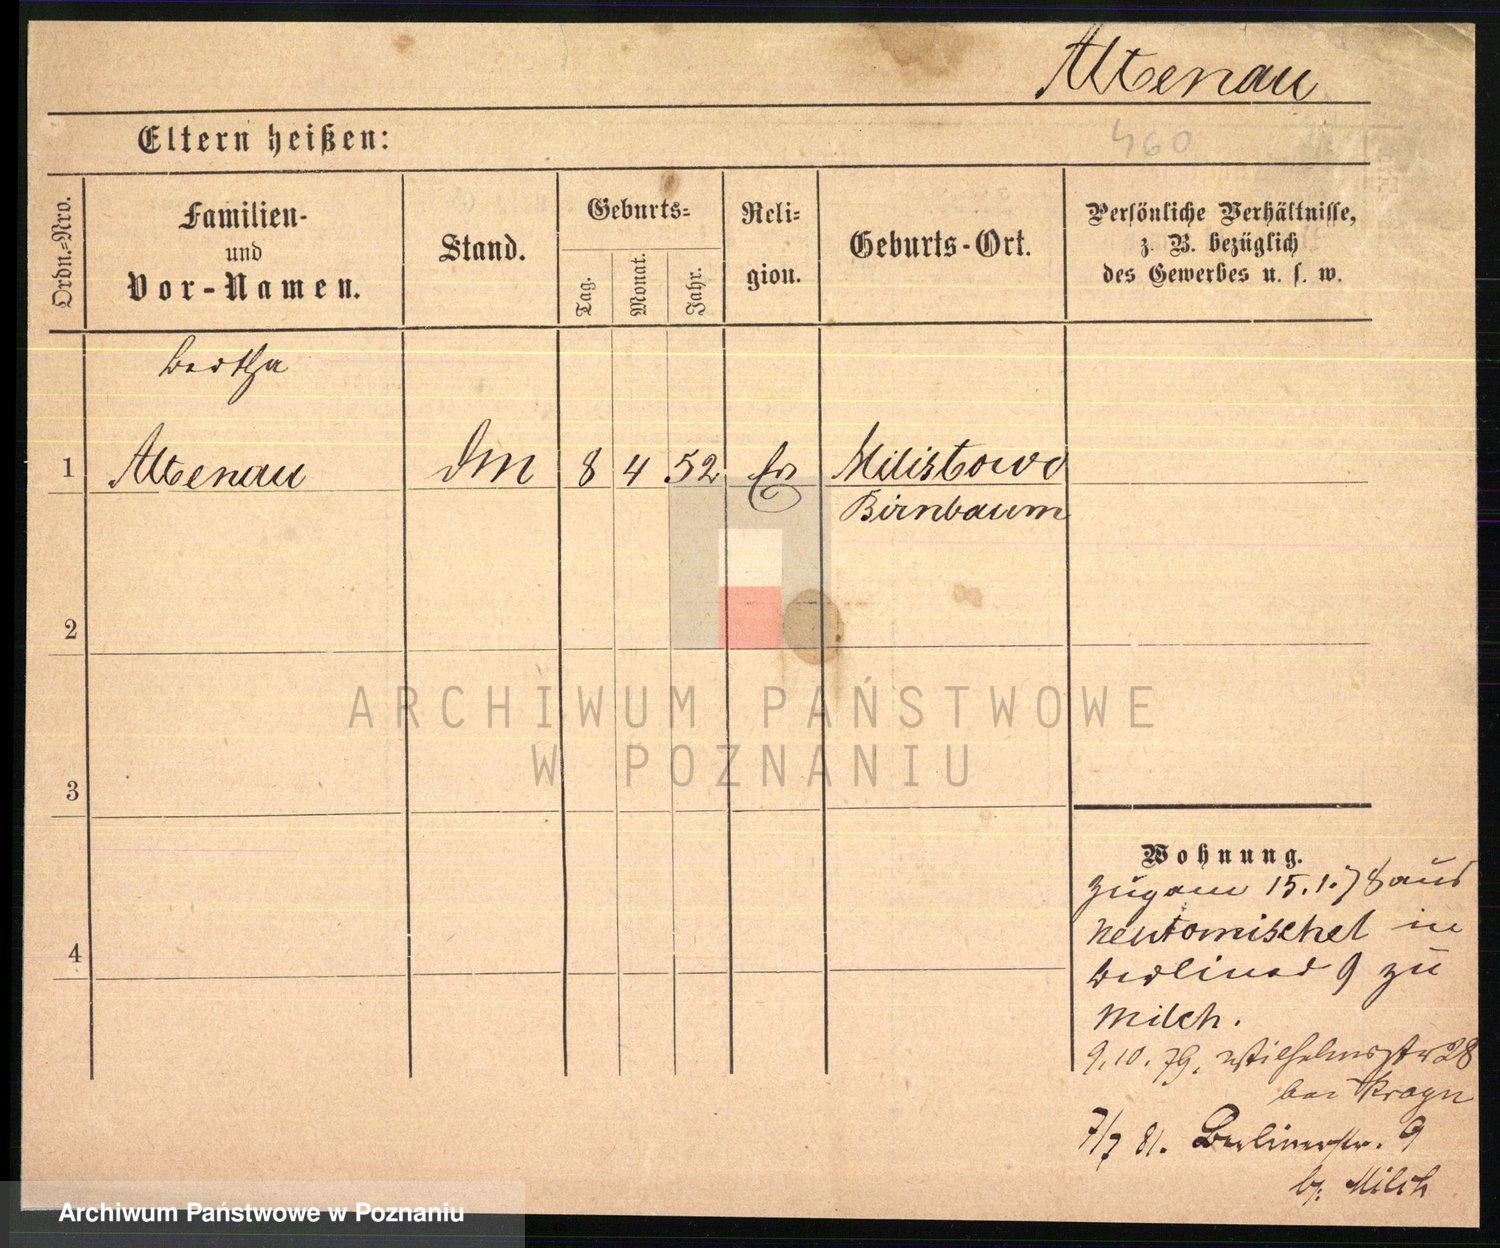 Altenau
460
Eltern heißen:
Ordn.-Nro.
Familien-
und
Vor-Namen.
Stand.
Geburts-
Tag.
Monat.
Jahr.
Reli-
gion.
Geburts-Ort.
Persönliche Verhältnisse,
z. B. bezüglich
des Gewerbes u. s. w.
Bertha
1 Altenau 8 4 52 Milistowo
Birnbaum
2
3
4
Wohnung.
Zugam 15.1.78 aus
Neutomischel in
Berliner 9 zu
Milch.
9.10.79. Wilhelmsstr 28
bei
7/7 81. Berlinerstr. 9
b. Milch
ARCHIWUM PAŃSTWOWE
W POZNANIU
Archiwum Państwowe w Poznaniu